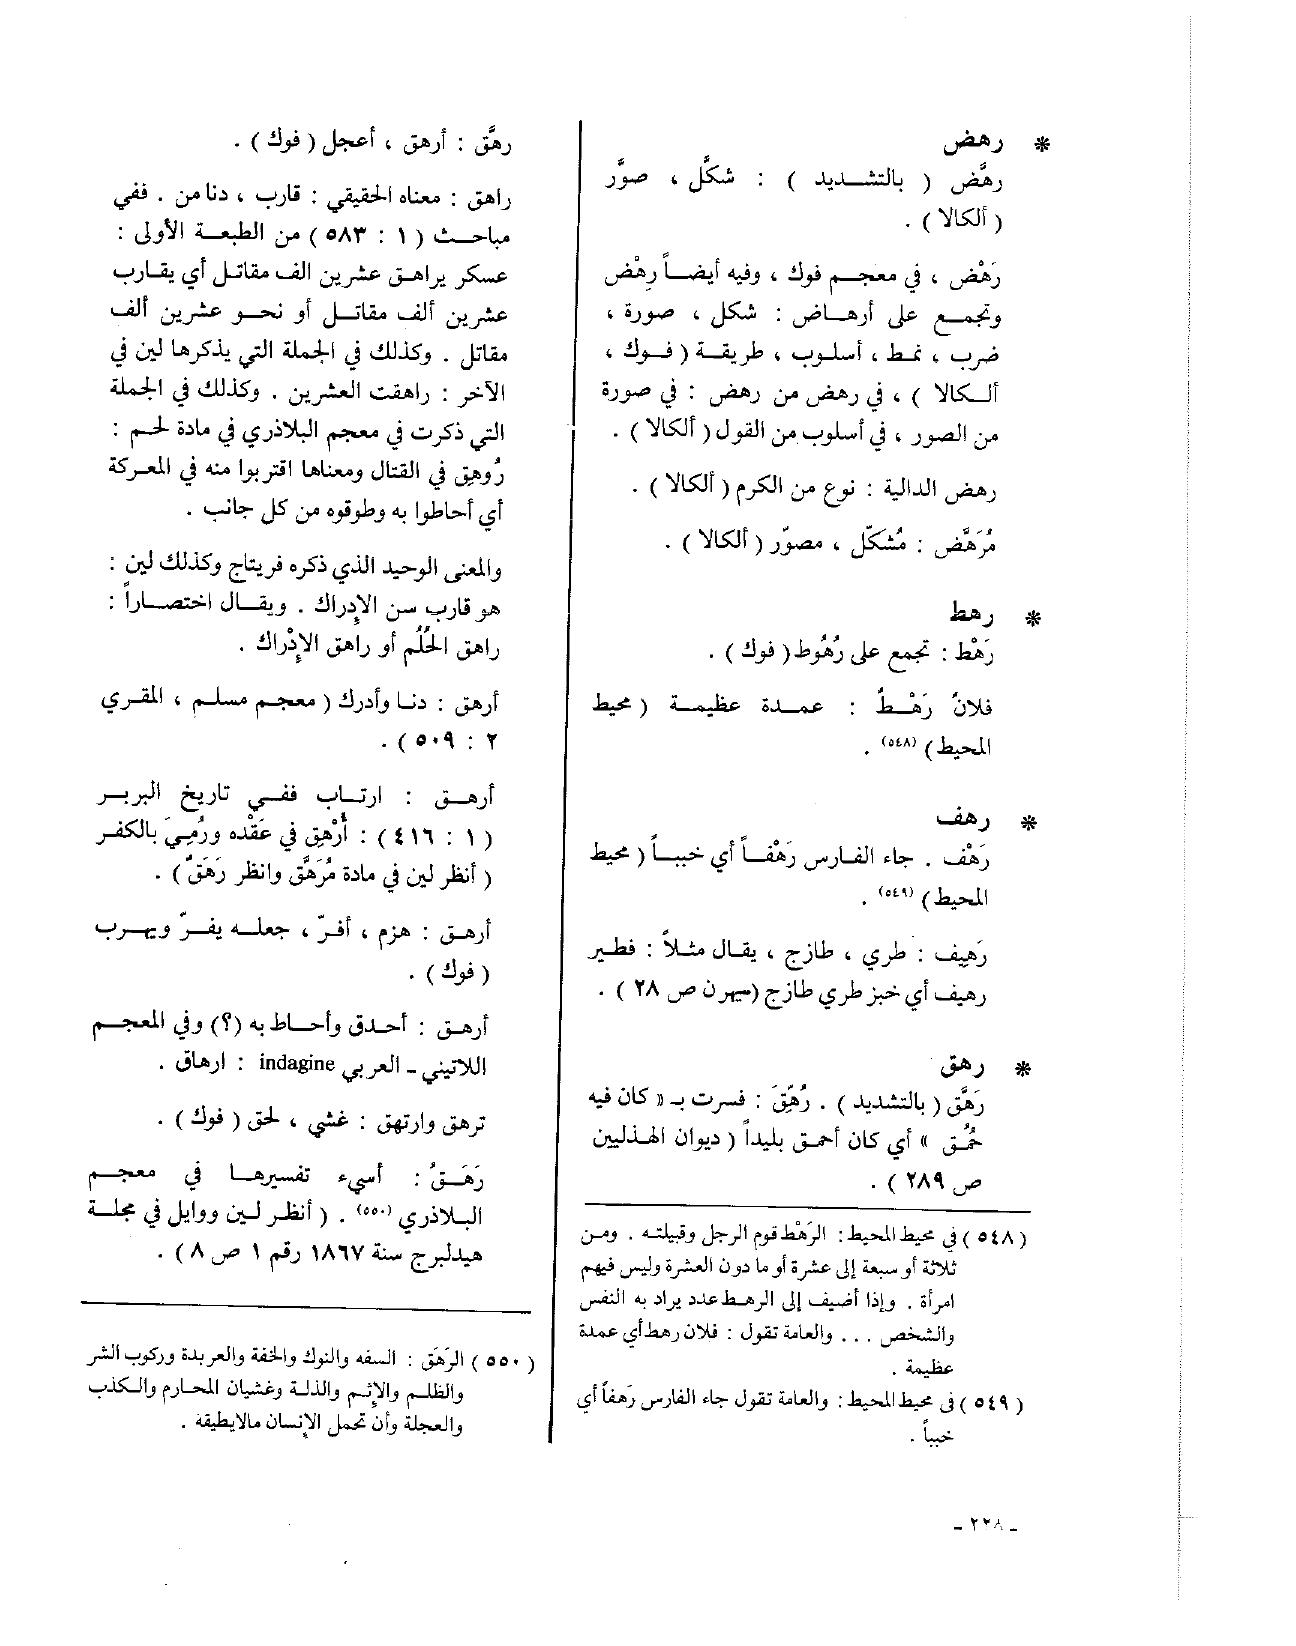 * رهض
رهَّض ( بالتشديد ) : شكَّل ، صوَّر
( ألكالا ) .
رَهْض ، في معجم فوك ، وفيه أيضاً رهْض
وتجمع على أرهاض : شكل ، صورة ،
ضرب ، نمط ، أسلوب ، طريقة ( فوك ،
ألكالا ) ، في رهض من رهض : في صورة
من الصور ، في أسلوب من القول ( ألكالا ) .
رهض الدالية : نوع من الكرم ( ألكالا ) .
مُرَهَّض : مُشكّل ، مصوّر ( ألكالا ) .
* رهط
رَهْط : تجمع على رُهُوط ( فوك ) .
فلانٌ رَهْطٌ : عمدة عظيمة ( محيط
المحيط ) (٥٤٨) .
* رهف
رَهْف . جاء الفارس رَهْفاً أي خبباً ( محيط
المحيط ) (٥٤٩) .
رَهِيف : طري ، طازج ، يقال مثلاً : فطير
رهيف أي خبز طري طازج ( ص ٢٨ ) .
* رهق
رَهَّق ( بالتشديد ) . رُهِّقَ : فسرت بـ « كان فيه
حُمْق » أي كان أحمق بليداً ( ديوان الهذليين
ص ٢٨٩ ) .
( ٥٤٨ ) في محيط المحيط : الرَهْط قوم الرجل وقبيلته . ومن
ثلاثة أو سبعة إلى عشرة أو ما دون العشرة وليس فيهم
امرأة . وإذا أضيف إلى الرهط عدد يراد به النفس
والشخص . . . والعامة تقول : فلان رهط أي عمدة
عظيمة .
( ٥٤٩ ) في محيط المحيط : والعامة تقول جاء الفارس رَهفاً أي
خبباً .
رهَّق : أرهق ، أعجل ( فوك ) .
راهق : معناه الحقيقي : قارب ، دنا من . ففي
مباحث ( ١ : ٥٨٣ ) من الطبعة الأولى :
عسكر يراهق عشرين الف مقاتل أي يقارب
عشرين ألف مقاتل أو نحو عشرين ألف
مقاتل . وكذلك في الجملة التي يذكرها لين في
الآخر : راهقت العشرين . وكذلك في الجملة
التي ذكرت في معجم البلاذري في مادة لحم :
رُوهِق في القتال ومعناها اقتربوا منه في المعركة
أي أحاطوا به وطوقوه من كل جانب .
والمعنى الوحيد الذي ذكره فريتاج وكذلك لين :
هو قارب سن الإدراك . ويقال اختصاراً :
راهق الحُلُم أو راهق الإدْراك .
أرهق : دنا وأدرك ( معجم مسلم ، المقري
٢ : ٥٠٩ ) .
أرهق : ارتاب ففي تاريخ البربر
( ١ : ٤١٦ ) : أُرْهِق في عَقْده ورُمِيَ بالكفر
( أنظر لين في مادة مُرَهَّق وانظر رَهَقٌ ) .
أرهق : هزم ، أفرّ ، جعله يفرّ ويهرب
( فوك ) .
أرهق : أحدق وأحاط به (؟) وفي المعجم
اللاتيني - العربي indagine : ارهاق .
ترهق وارتهق : غشي ، لحق ( فوك ) .
رَهَقٌ : أسيء تفسيرها في معجم
البلاذري (٥٥٠) . ( أنظر لين ووايل في مجلة
هيدلبرج سنة ١٨٦٧ رقم ١ ص ٨ ) .
( ٥٥٠ ) الرَهَق : السفه والنوك والخفة والعربدة وركوب الشر
والظلم والإثم والذلة وغشيان المحارم والكذب
والعجلة وأن تحمل الإنسان مالايطيقه .
- ٢٢٨ -